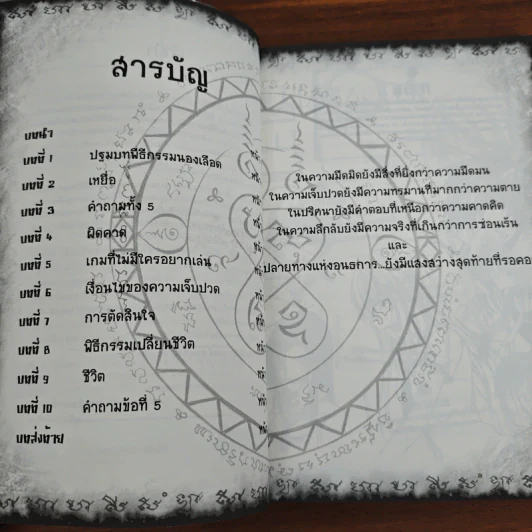 สารบัญ
บทนำ
บทที่ 1 ปฐมบทพิธีกรรมนองเลือด
บทที่ 2 เหยื่อ
บทที่ 3 คำถามทั้ง 5
บทที่ 4 ผิดคาด
บทที่ 5 เกมที่ไม่มีใครอยากเล่น
บทที่ 6 เงื่อนไขของความเจ็บปวด
บทที่ 7 การตัดสินใจ
บทที่ 8 พิธีกรรมเปลี่ยนชีวิต
บทที่ 9 ชีวิต
บทที่ 10 คำถามข้อที่ 5
บทส่งท้าย
ในความมืดมิดยังมีสิ่งที่ยิ่งกว่าความมืดมน
ในความเจ็บปวดยังมีความทรมานที่มากกว่าความตาย
ในปริศนายังมีคำตอบที่เหนือกว่าความคาดคิด
ในความลึกลับยังมีความจริงที่เกินกว่าการซ่อนเร้น
และ
ปลายทางแห่งอนธการ...ยังมีแสงสว่างสุดท้ายที่รอคอ